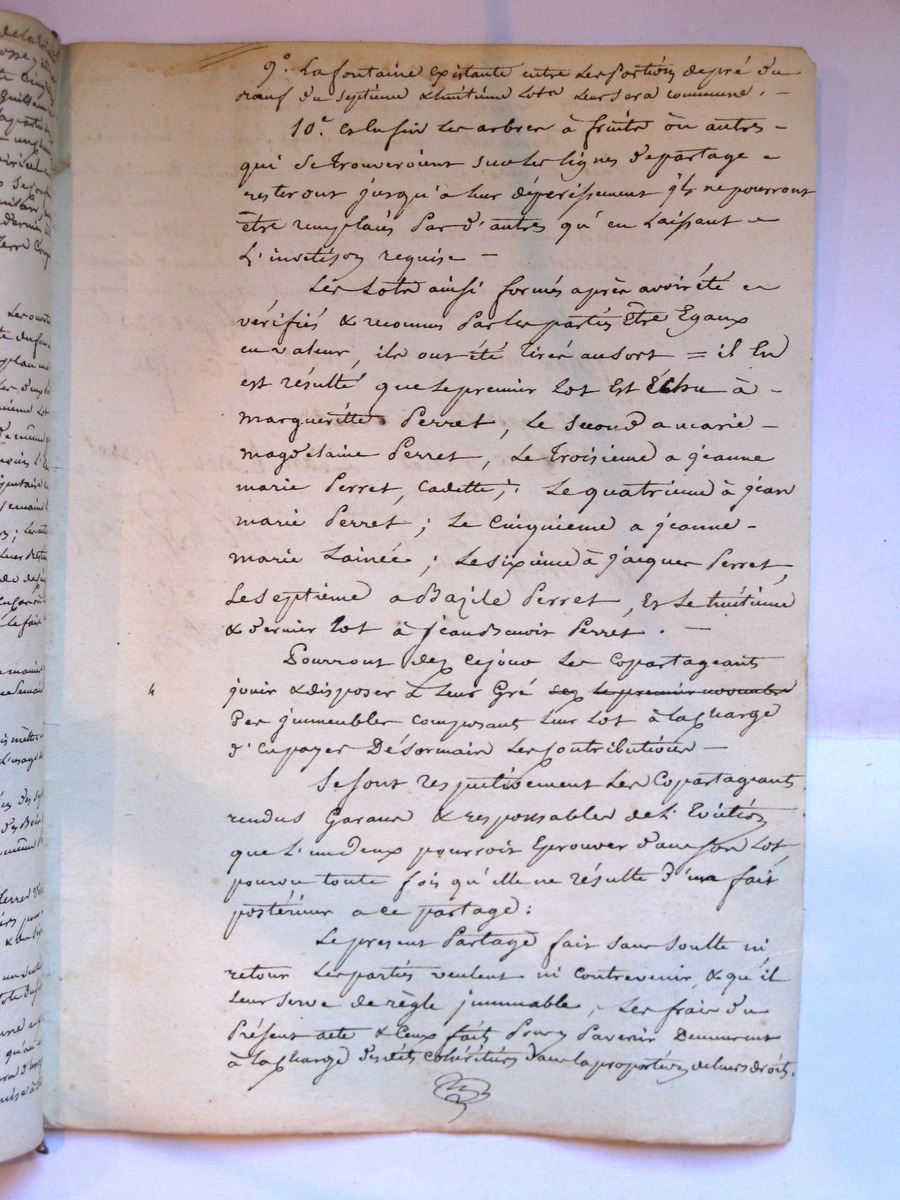 9.° La fontaine existante entre les portions de pré du
nœuf du septième & huitième lots leur sera commune. –
10.° et enfin les arbres à fruits ou autres –
qui se trouveroient sur les lignes de partage –
resteront jusqu'à leur dépérissement ils ne pourront
être remplacés par d'autres qu'en laissant –
L'invetison requise –
Les Lots ainsi formés après avoir été –
vérifiés & reconnus par les parties Etre Egaux
en valeur, ils ont été tirés au sort = il En
est résulté que le premier lot Est Echu à –
margueritte Perret, Le second a marie –
magdelaine Perret, Le Troisieme a jeanne
marie Perret, Cadette; Le quatrieme à jean
marie Perret; Le Cinquieme a jeanne –
marie Lainée; Le sixieme à jacques Perret,
Le septieme a Bazile Perret, Et Le huitieme
& dernier lot à Jean Benoit Perret. –
Pourront dez ce jour les Copartageants
jouir & disposer à leur Gré dez le premier novembre
Des jmmeubles composant leur lot à la Charge
d'En payer Désormais les Contributions –
Se sont respectivement les Copartageants
rendus Garans & responsables de l'Eviction
que l'un d'eux pourroit Eprouver dans son lot,
pourvu toute fois qu'elle ne résulte d'un fait
postérieur a ce partage:
Le present Partage fait sans soulte ni
retour les parties veulent ni contrevenir, & qu'il
leur serve de règle jmmuable, les frais du
Présent acte & Ceux faits Pour y Parvenir Demeurent
à la Charge desdits Cohéritiers dans la proportion de leurs droits.